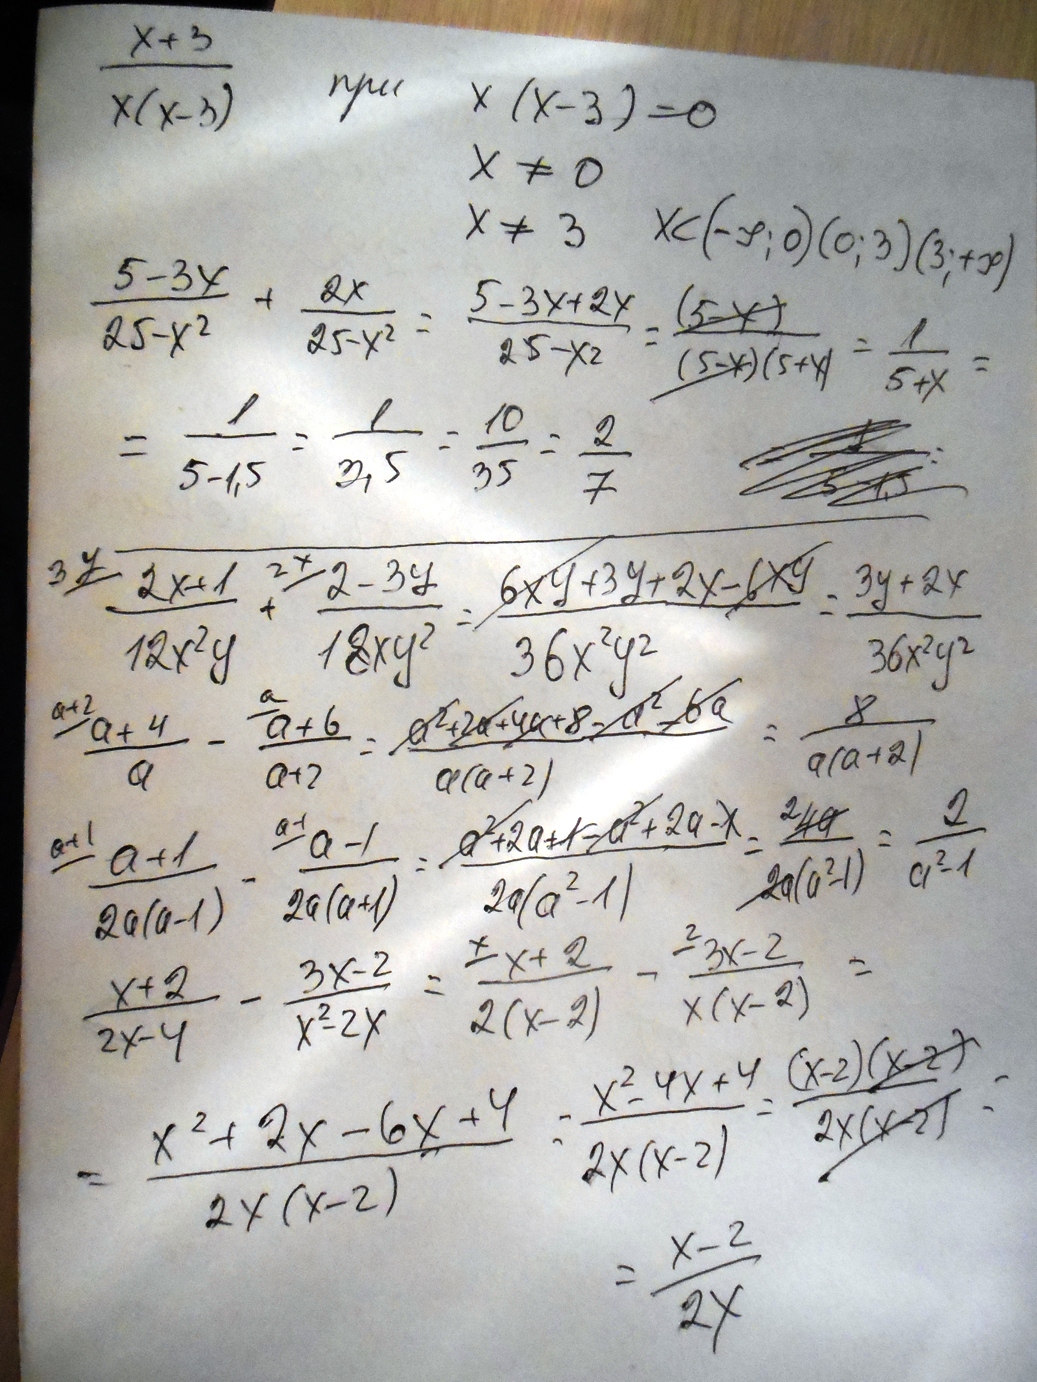 (x+3)/(x(x-3)) при x(x-3)=0
x ≠ 0
x ≠ 3 x<(-∞;0)(0;3)(3;+∞)
(5-3x)/(25-x²) + 2x/(25-x²) = (5-3x+2x)/(25-x2) = (5-x)/((5-x)(5+x)) = 1/(5+x) =
= 1/(5-1,5) = 1/(3,5) = 10/35 = 2/7
3y/ (2x+1)/(12x²y) + 2x/ (2-3y)/(18xy²) = (6xy+3y+2x-6xy)/(36x²y²) = (3y+2x)/(36x²y²)
a+2/ (a+4)/a - a/ (a+6)/(a+2) = (a²+2a+4a+8-a²-6a)/(a(a+2)) = 8/(a(a+2))
a+1/ (a+1)/(2a(a-1)) - a-1/ (a-1)/(2a(a+1)) = (a²+2a+1-a²+2a-1)/(2a(a²-1)) = 2 4a/(2a(a²-1)) = 2/(a²-1)
(x+2)/(2x-4) - (3x-2)/(x²-2x) = x/ (x+2)/(2(x-2)) - 2/ (3x-2)/(x(x-2)) =
= (x²+2x-6x+4)/(2x(x-2)) = (x²-4x+4)/(2x(x-2)) = ((x-2)(x-2))/(2x(x-2)) =
= (x-2)/(2x)